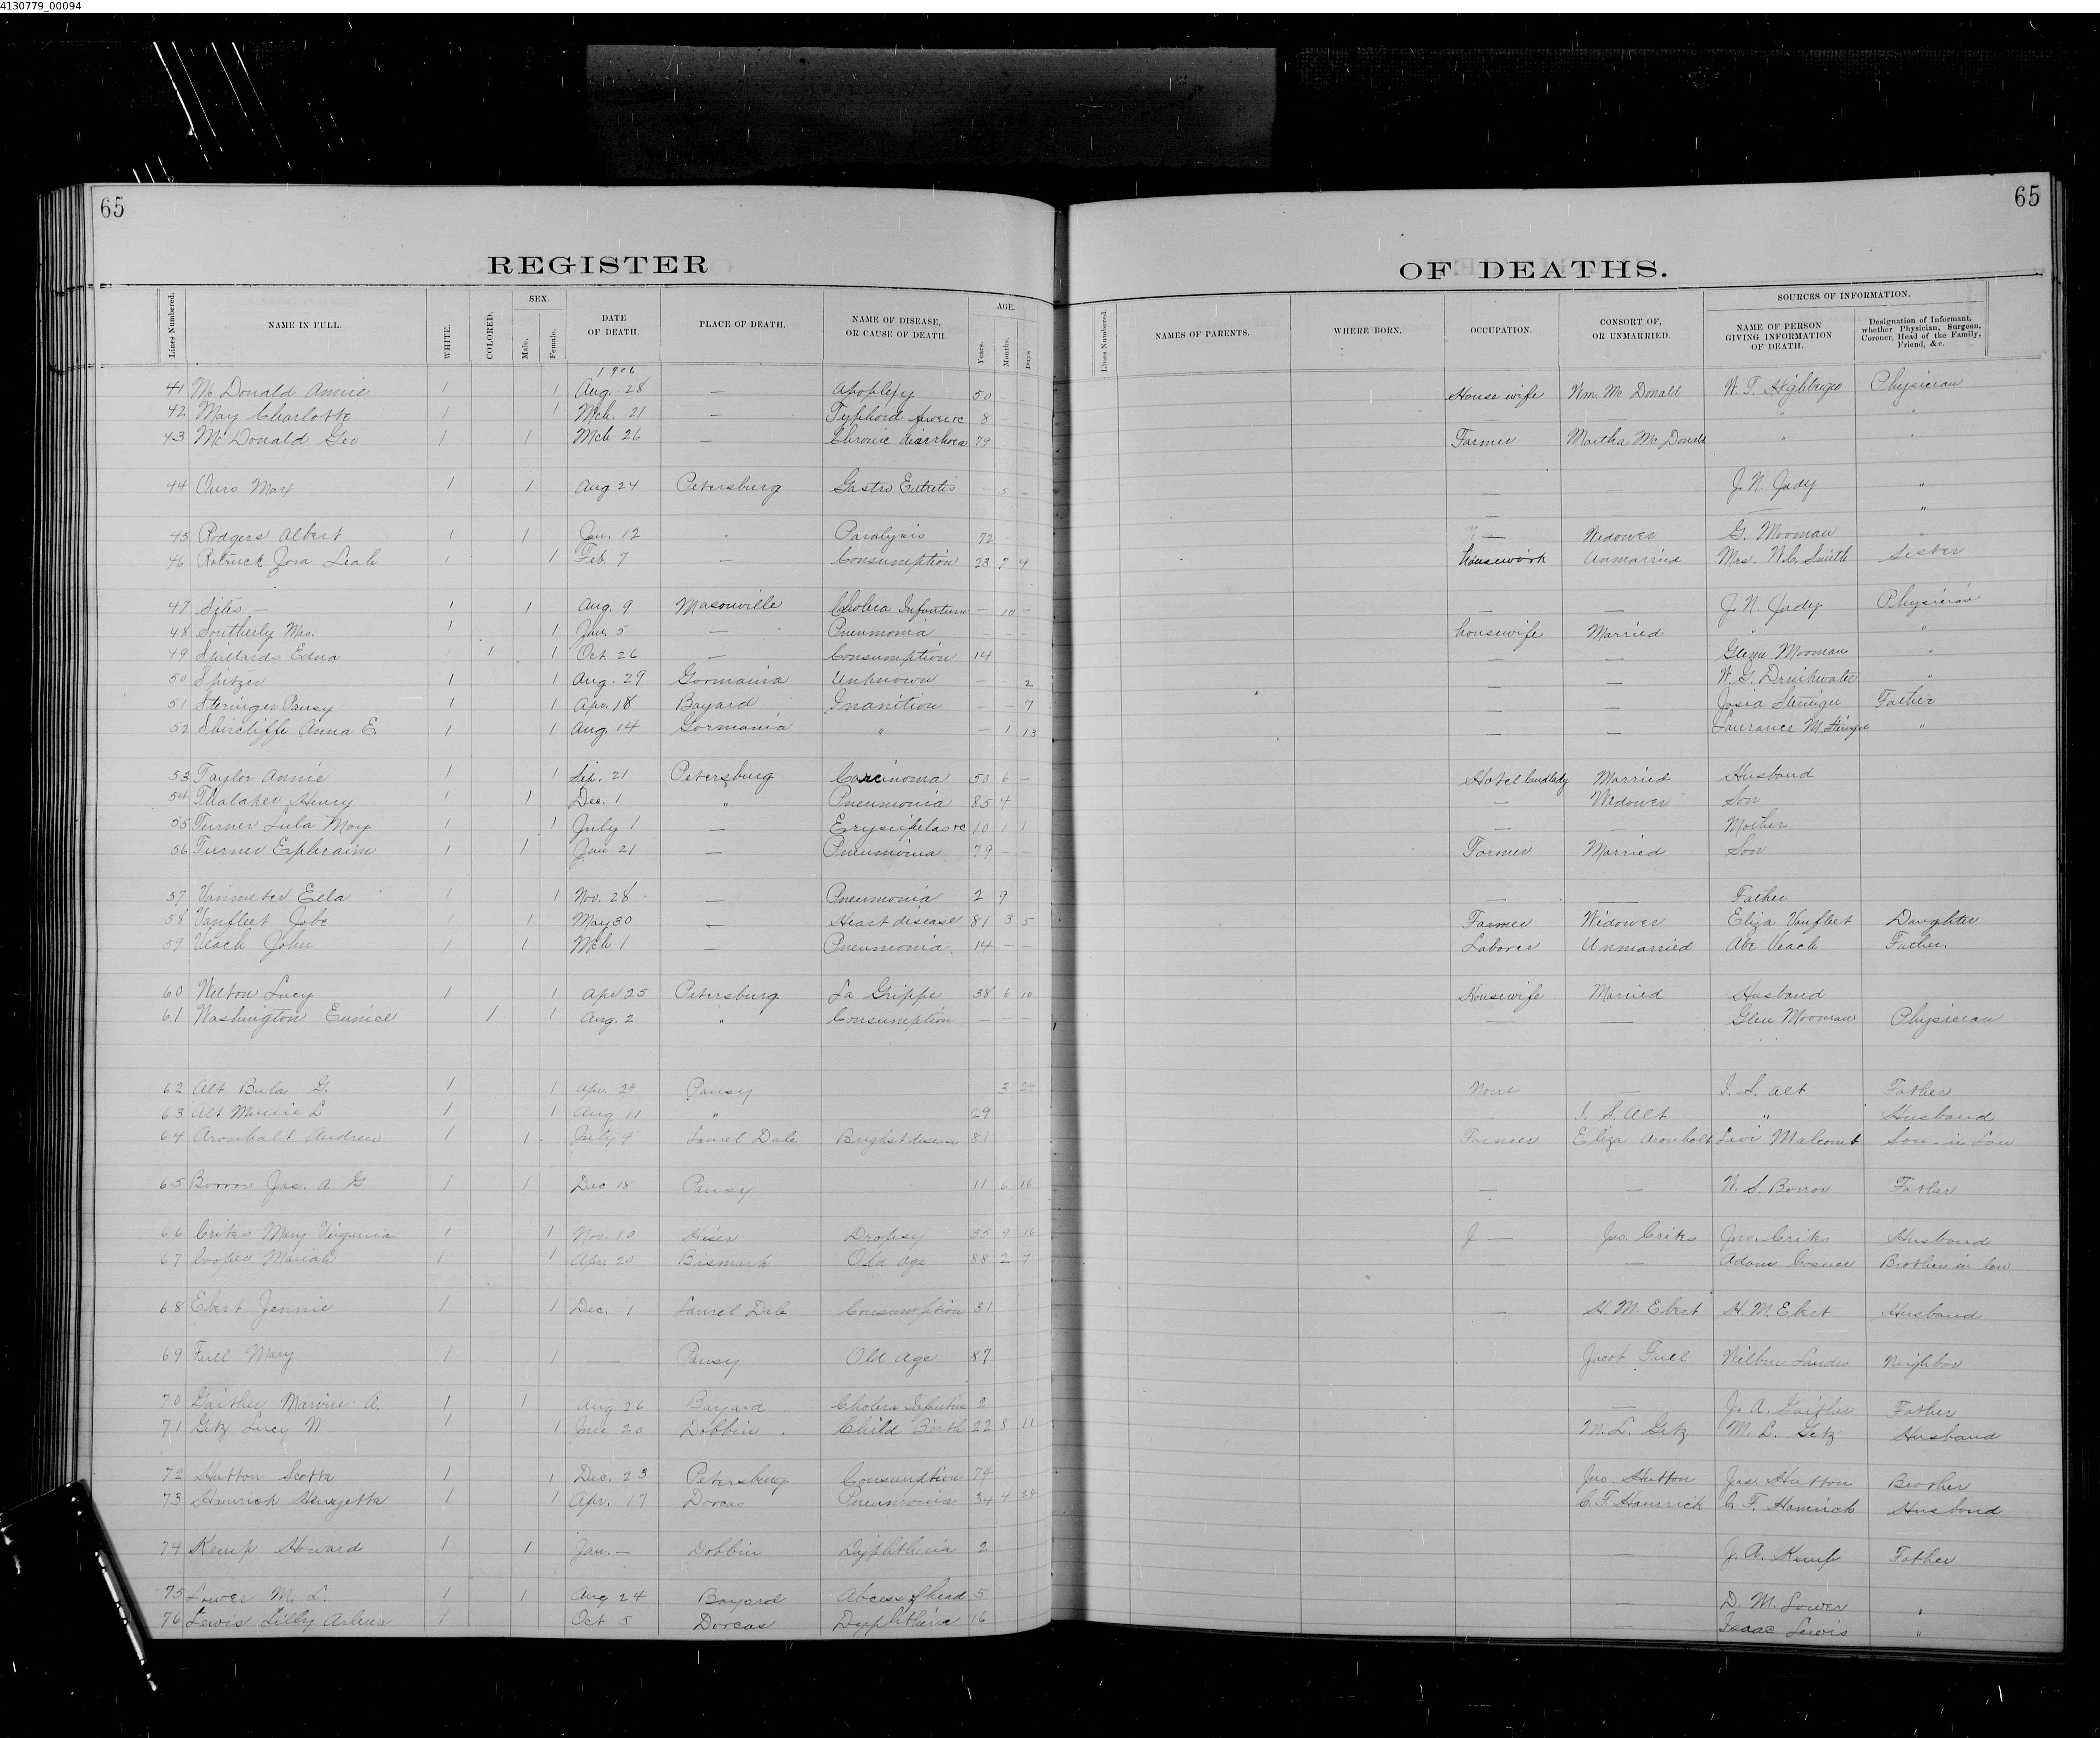 4130779_00094
65
65
REGISTER
OF DEATHS.
Lines Numbered. NAME IN FULL. WHITE. COLORED. SEX. Male. Female. DATE OF DEATH. PLACE OF DEATH. NAME OF DISEASE, OR CAUSE OF DEATH. AGE. Years. Months. Days
Lines Numbered. NAMES OF PARENTS. WHERE BORN. OCCUPATION. CONSORT OF, OR UNMARRIED. SOURCES OF INFORMATION. NAME OF PERSON GIVING INFORMATION OF DEATH. Designation of Informant, whether Physician, Surgeon, Coroner, Head of the Family, Friend, &c.
1906
41 McDonald Annie 1 1 Aug. 28 — Apoplexy 50 — — House wife Wm. McDonald W. T. Highberger Physician
42 May Charlotte 1 1 Mch. 21 — Typhoid 8 — "  "
43 McDonald Geo 1 1 Mch 26 — Chronic diarrhoea 79 Farmer Martha McDonald " "
44 Ours Max 1 1 Aug 24 Petersburg Gastro Entretis — 5 — — — J. N. Judy "
— — "
45 Rodgers Albert 1 1 Jan. 12 " Paralysis 72 — — Widower G. Mooman "
46 Rotruck Jora Leah 1 1 Feb. 7 — Consumption 23 7 4 housework Unmarried Mrs. W.C. Smith Sister
47 Sites — 1 1 Aug. 9 Masonville Cholera Infantum — 10 — — — J. N. Judy Physician
48 Southerly Mrs. 1 1 Jan. 5 — Pneumonia — — — housewife Married " "
49 Edna 1 1 Oct. 26 — Consumption 14 — — Glenn Mooman "
50 Spitzer 1 1 Aug. 29 Gormania Unknown — — 2 — — W. G. Drinkwater "
51 Steringer Pansy 1 1 Apr. 18 Bayard Inanition — — 7 — — Josia Steringer Father
52 Shircliffe Anna E. 1 1 Aug. 14 Gormania " — 1 13 — — Laurance M. "
53 Taylor Annie 1 1 21 Petersburg Carcinoma 50 6 — Hotel landlady Married Husband
54 Thalaker Henry 1 1 Dec. 1 " Pneumonia 85 4 — Widower Son
55 Turner Lula May 1 1 July 1 — Erysipelas &c 10 1 1 — — Mother
56 Turner Ephraim 1 1 Jan 21 — Pneumonia 79 — — Farmer Married Son
57 Vanmeter Ella 1 1 Nov. 28 — Pneumonia 2 9 — — Father
58 Vanfleet Jobe 1 1 May 30 — Heart disease 81 3 5 Farmer Widower Eliza Vanfleet Daughter
59 Veach John 1 1 Mch 1 — Pneumonia. 14 — — Laborer Unmarried Abe Veach Father.
60 Welton Lucy 1 1 Apr 25 Petersburg La Grippe 38 6 10 Housewife Married Husband
61 Washington Eunice 1 1 Aug. 2 " Consumption — — — — — Glen Mooman Physician
62 Alt Bula G. 1 1 Apr. 24 Pansy 3 24 None — I. S. Alt Father
63 Alt Minnie L 1 1 Aug 11 " 29 — I. S. Alt " Husband
64 Aronhalt Andrew 1 1 July 4 Laurel Dale Brights disease 81 Farmer Eliza Aronholt Levi Malcomb Son-in Law
65 Borror Jas. A. G 1 1 Dec 18 Pansy 11 6 16 — — W. S. Borror Father
66 Crites Mary Virginia 1 1 Nov. 10 Hiser Dropsy 55 9 16 — Jno. Crites Jno. Crites Husband
67 Cooper Mariah 1 1 Apr 20 Bismark Old Age 88 2 9 — — Adam Cosner Brother in law
68 Ebert Jennie 1 1 Dec. 1 Laurel Dale Consumption 31 — H. M. Ebert H. M. Ebert Husband
69 Full Mary 1 1 — Pansy Old Age 87 Jacob Full Wilbur Landes Neighbor
70 Gaither Marvin A. 1 1 Aug 26 Bayard Cholera Infantum 2 — J. A. Gaither Father
71 Getz Lucy N 1 1 June 20 Dobbin Child Birth 22 8 11 M. L. Getz M. L. Getz Husband
72 Hutton Scotta 1 1 Dec. 23 Petersburg Consumption 74 Jno. Hutton Jas. Hutton Brother
73 Hamrick Henrietta 1 1 Apr. 17 Dorcas Pneumonia 34 4 C. F. Hamrick C. F. Hamrick Husband
74 Kemp Howard 1 1 Jan. — Dobbin Dyphtheria 2 — J. A. Kemp Father
75 Lower M. L. 1 1 Aug 24 Bayard Abcess of head 5 — D. M. Lower "
76 Lewis Lilly Arlena 1 Oct 5 Dorcas Dyphtheria 16 — Isaac Lewis "